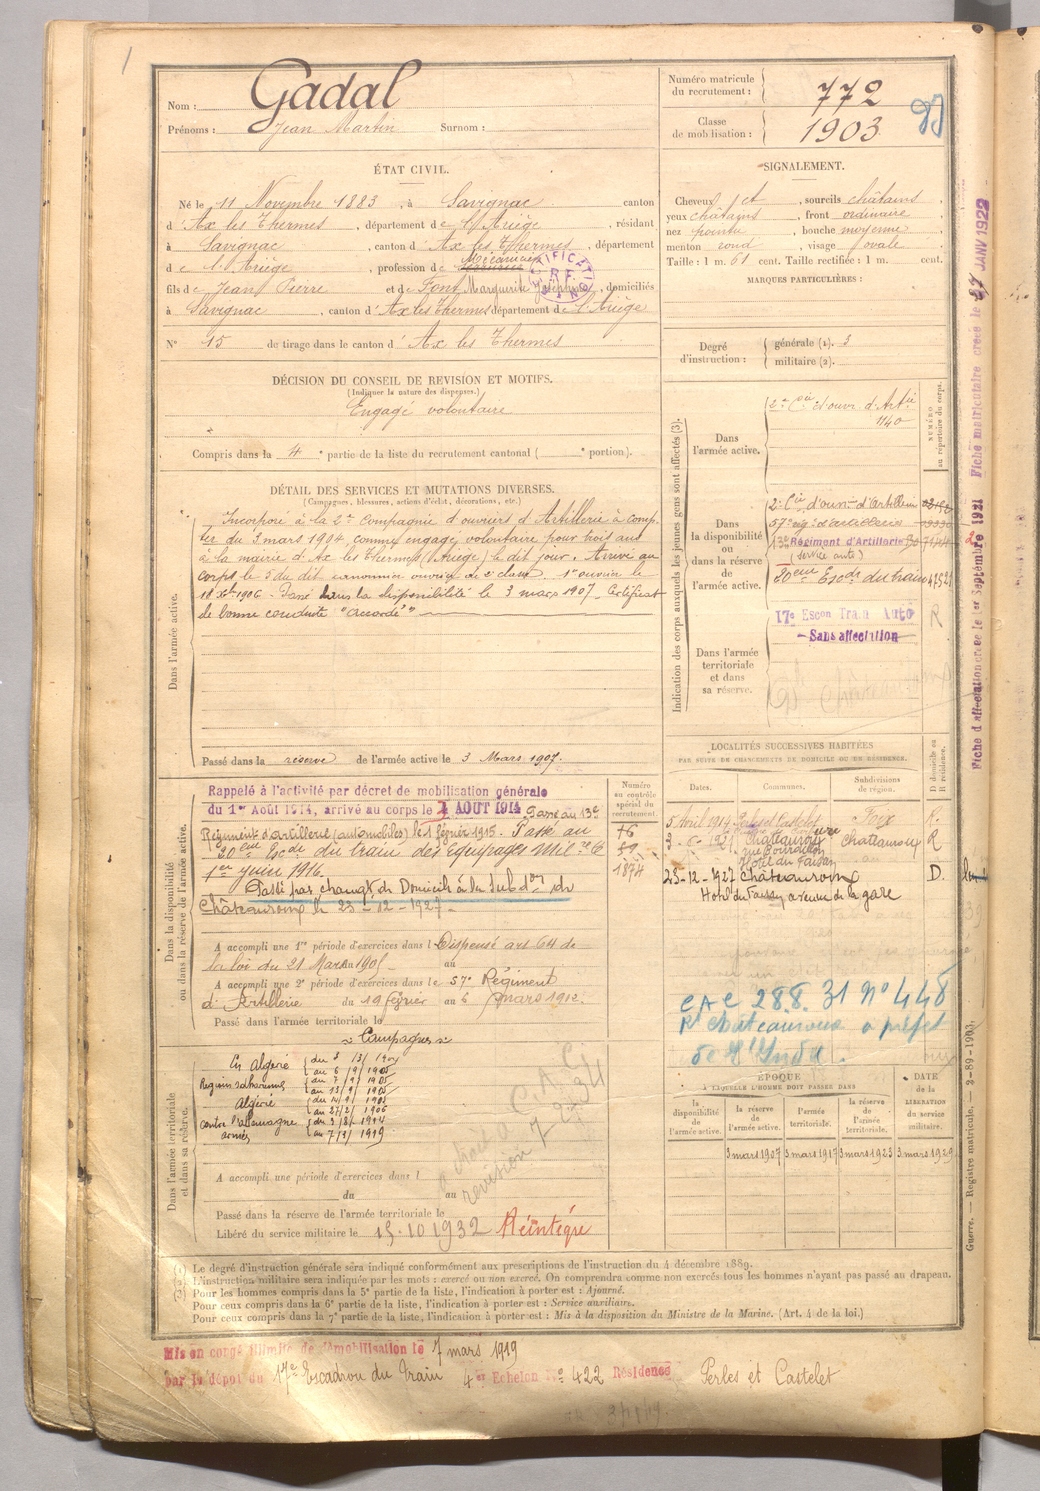 Nom : Gadal
Prénoms : Jean Martin Surnom :
Numéro matricule du recrutement : 772
Classe de mobilisation : 1903
ÉTAT CIVIL.
Né le 11 Novembre 1883, à Savignac canton
d'Ax les Thermes, département de l'Ariège, résidant
à Savignac, canton d'Ax les Thermes, département
de l'Ariège, profession de Mécanicien
fils de Jean Pierre et de Font Marguerite, domiciliés
à Savignac, canton d'Ax les Thermes département de l'Ariège
N° 15 de tirage dans le canton d'Ax les Thermes
SIGNALEMENT.
Cheveux et, sourcils châtains,
yeux châtains, front ordinaire,
nez pointu, bouche moyenne,
menton rond, visage ovale.
Taille : 1 m. 61 cent. Taille rectifiée : 1 m. cent.
MARQUES PARTICULIÈRES :
Degré d'instruction : générale (1). 3
militaire (2).
DÉCISION DU CONSEIL DE REVISION ET MOTIFS.
(Indiquer la nature des dispenses.)
Engagé volontaire
Compris dans la 4e partie de la liste du recrutement cantonal ( e portion).
DÉTAIL DES SERVICES ET MUTATIONS DIVERSES.
(Campagnes, blessures, actions d'éclat, décorations, etc.)
Dans l'armée active.
Incorporé à la 2e Compagnie d'ouvriers d'Artillerie à comp-
ter du 3 mars 1904, comme engagé volontaire pour trois ans
à la mairie d'Ax les Thermes (Ariège) le dit jour. Arrivé au
corps le 5 du dit, canonnier ouvrier de 2e classe. 1er ouvrier le
18 Xbre 1906. Passé dans la disponibilité le 3 mars 1907. Certificat
de bonne conduite "Accordé"
Passé dans la réserve de l'armée active le 3 Mars 1907.
Indication des corps auxquels les jeunes gens sont affectés (3).
NUMÉRO au répertoire du corps.
Dans l'armée active.
2e Cie d'ouvr. d'Artie
1140
Dans la disponibilité ou dans la réserve de l'armée active.
2e Cie d'ouvr d'Artillerie
57e rég. d'artillerie
13e Régiment d'Artillerie
(service auto)
20eme Escde du train
Dans l'armée territoriale et dans sa réserve.
17e Escon Train Auto R
Sans affectation
Fiche d'affectation créée le 1er Septembre 1921 Fiche matriculaire créée le 27 JANV 1922
Dans la disponibilité ou dans la réserve de l'armée active.
Rappelé à l'activité par décret de mobilisation générale
du 1er Août 1914, arrivé au corps le 3 AOUT 1914 Passé au 13e
Régiment d'artillerie (automobiles) le 1 février 1915. Passé au
20eme Escde du train des Equipages Mil.res le
1er juin 1916.
Passé par changt de Domicile à la Subdon de
Châteauroux le 23-12-1927
Numéro au contrôle spécial du recrutement.
A accompli une 1re période d'exercices dans l Dispensé art 64 de
la loi du 21 Mars 1905 au
A accompli une 2e période d'exercices dans le 57e Régiment
d'Artillerie du 19 février au 6 mars 1912.
Passé dans l'armée territoriale le
LOCALITÉS SUCCESSIVES HABITÉES
PAR SUITE DE CHANGEMENTS DE DOMICILE OU DE RÉSIDENCE.
Dates. Communes. Subdivisions de région. D domicile ou R résidence.
5 Avril 1914 Foix R.
Châteauroux Châteauroux R
Hôtel du Faisan
23-12-1927 Châteauroux D.
Hôtel du Faisan avenue de la gare
CAC 288.31 n° 448
Rt Châteauroux à préfet
de l'Indre.
Dans l'armée territoriale et dans sa réserve.
Campagnes
En Algérie
Région saharienne
Algérie
contre l'Allemagne
armées
C.A.C.
7-2-34
revision
A accompli une période d'exercices dans l
du au
Passé dans la réserve de l'armée territoriale le
Libéré du service militaire le 15.10.1932 Réintégré
ÉPOQUE
À LAQUELLE L'HOMME DOIT PASSER DANS
DATE DE LA LIBÉRATION du service militaire.
la disponibilité de l'armée active. la réserve de l'armée active. l'armée territoriale. la réserve de l'armée territoriale.
3 mars 1907 3 mars 1917 3 mars 1923 3 mars 1929
Guerre. — Registre matricule. — 2-89-1903.
(1) Le degré d'instruction générale sera indiqué conformément aux prescriptions de l'instruction du 4 décembre 1889.
(2) L'instruction militaire sera indiquée par les mots : exercé ou non exercé. On comprendra comme non exercés tous les hommes n'ayant pas passé au drapeau.
(3) Pour les hommes compris dans la 5e partie de la liste, l'indication à porter est : Ajourné.
Pour ceux compris dans la 6e partie de la liste, l'indication à porter est : Service auxiliaire.
Pour ceux compris dans la 7e partie de la liste, l'indication à porter est : Mis à la disposition du Ministre de la Marine. (Art. 4 de la loi.)
Mis en congé illimité de démobilisation le 7 mars 1919
par le dépôt du 17e Escadron du Train 4er Echelon No 422 Résidence Perles et Castelet